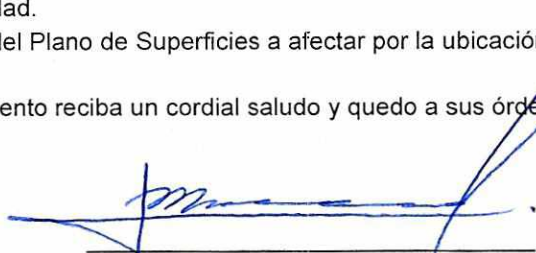 dad.
del Plano de Superficies a afectar por la ubicación
ento reciba un cordial saludo y quedo a sus órde